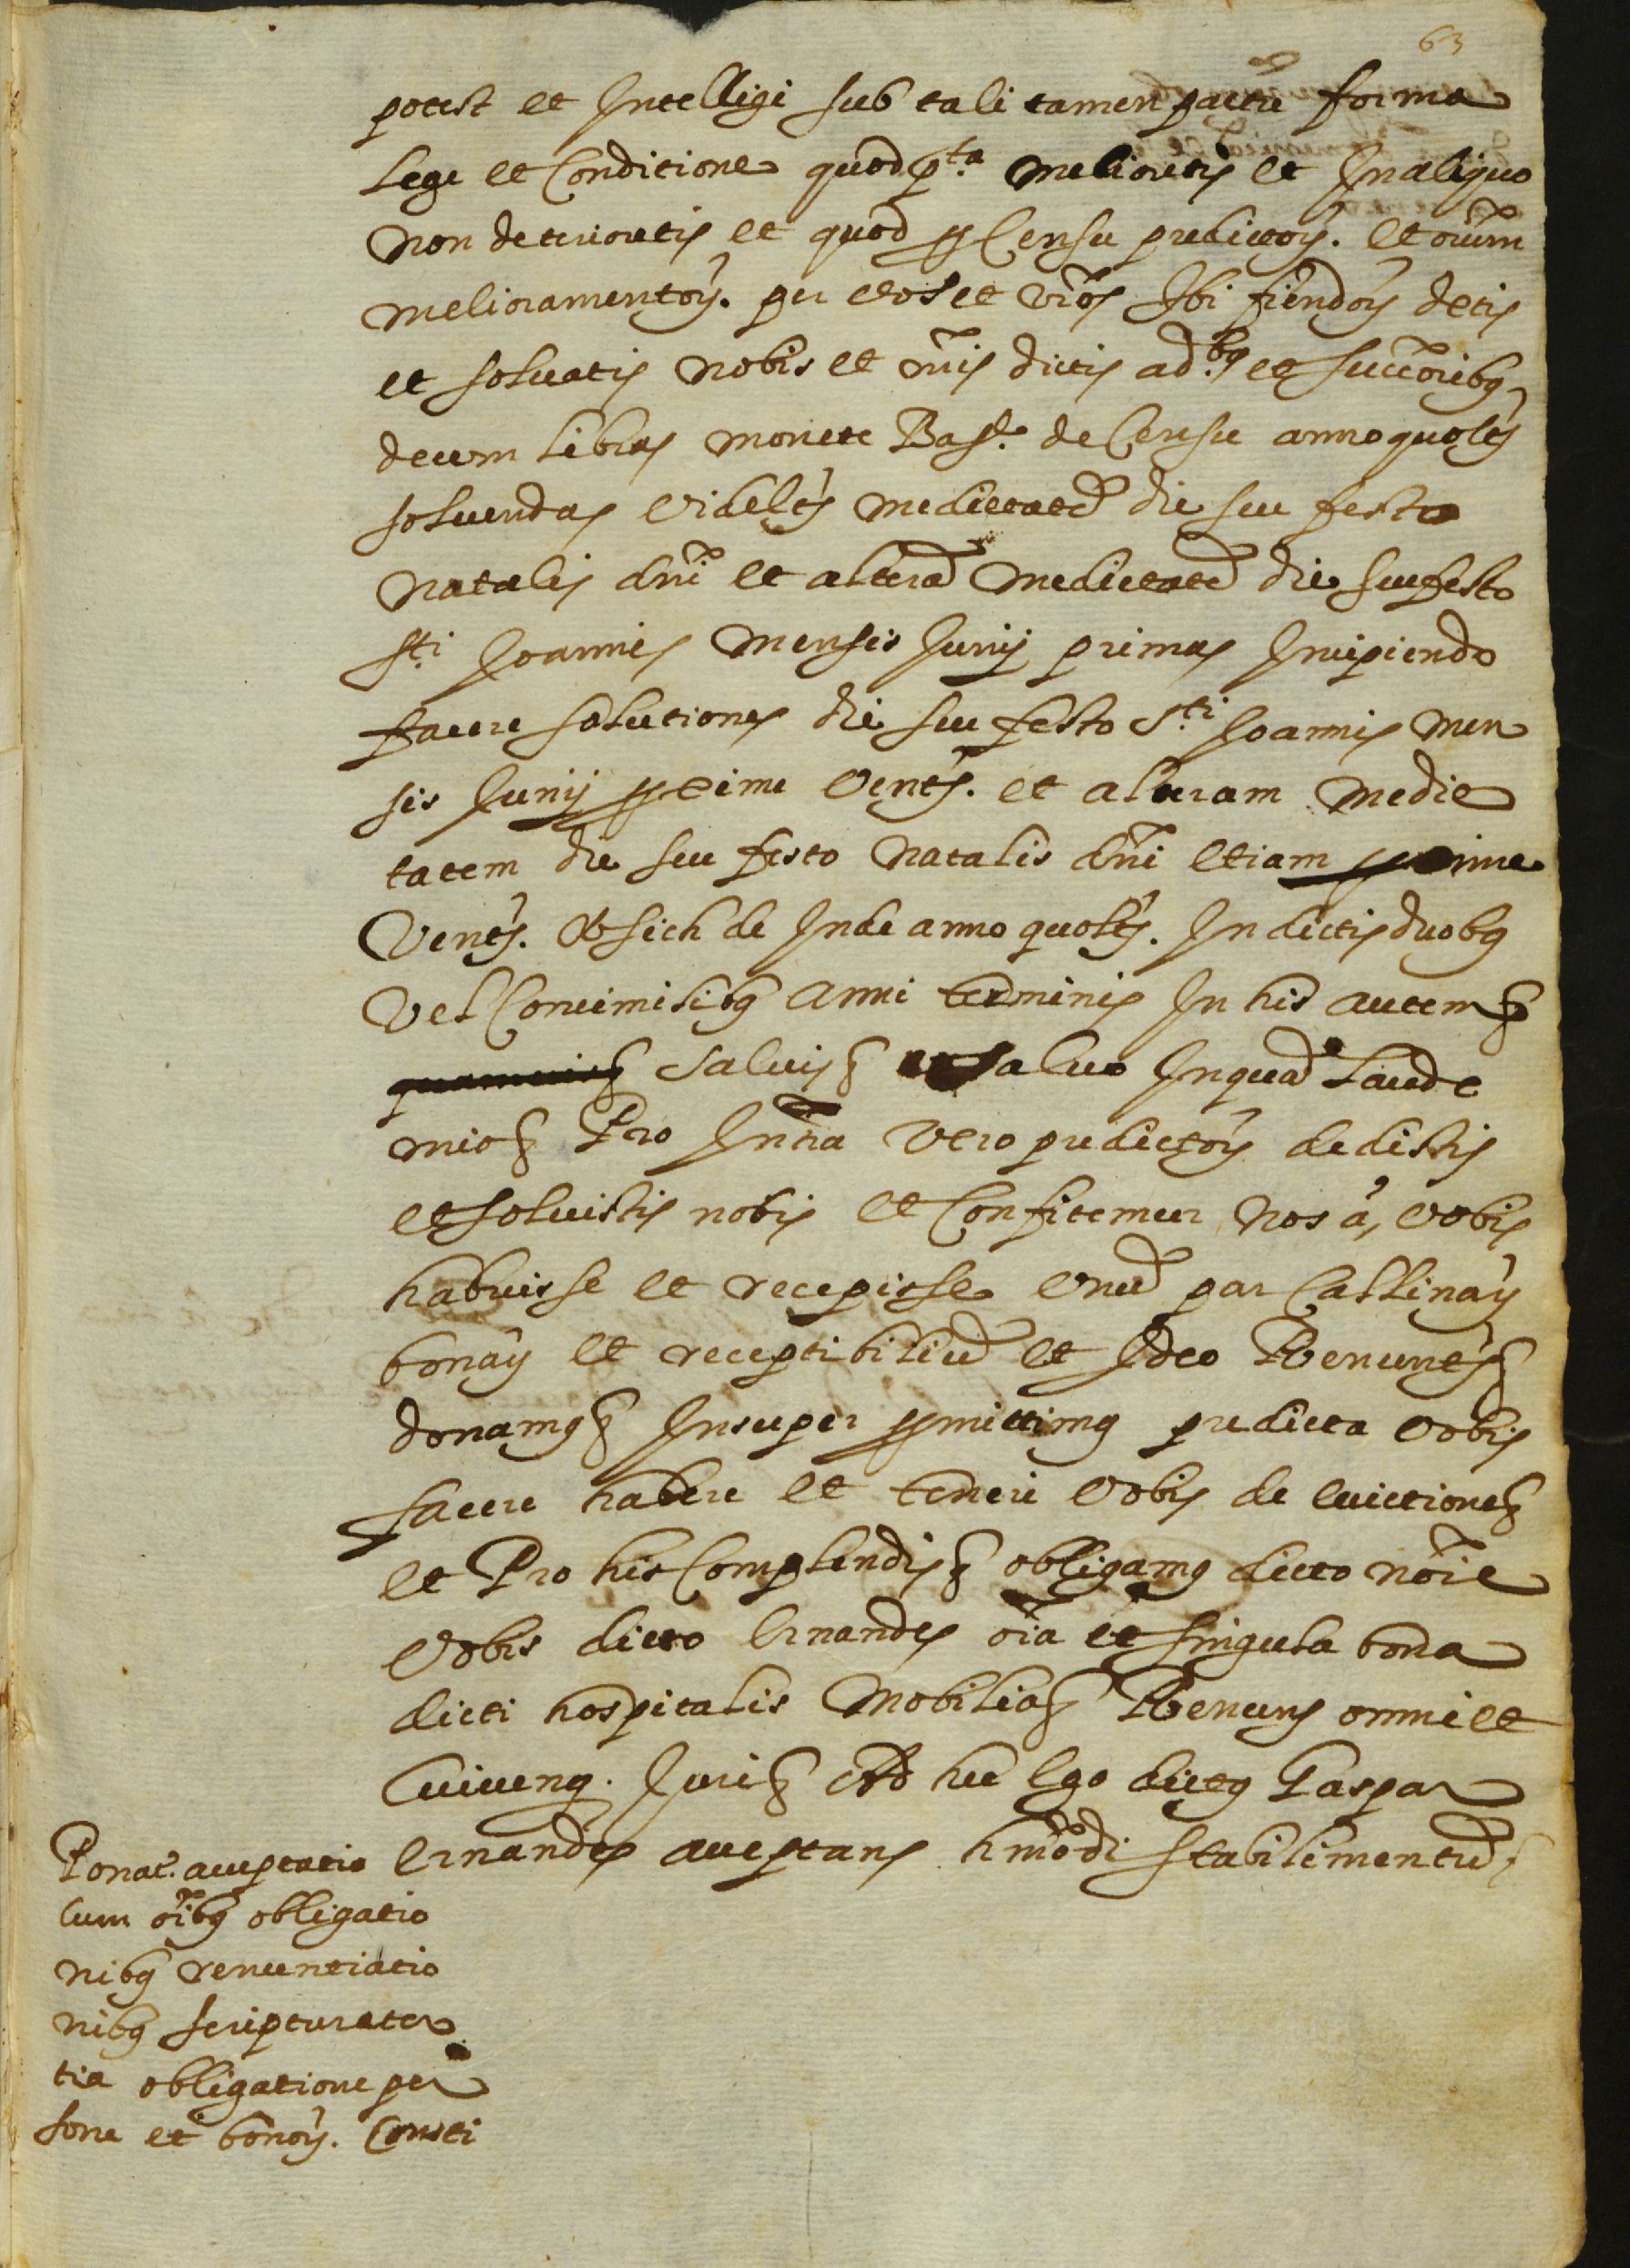 63
potest et Intelligi sub tali tamen pactu forma
Lege et Conditione quod p.ta melioretis et In aliquo
non deterioretis et quod p Censu predictoꝝ. et oium
melioramentoꝝ. per vos et vros Ibi fiendoꝝ detis
et solvatis nobis et nris dictis ad.bꝯ et succoribꝯ
decem libras monete Barse. de Censu anno quolꝫ
solvendas videlꝫ medietatē die seu festo
natalis dni et alterā medietatē die seu festo
Sti Joannis mensis Junij primas Incipiendo
facere solutiones die seu festo S.ti Joannis men
sis Junij pxime ventꝫ. et alteram medie
tatem die seu festo natalis dni etiam pxime
Ventꝫ. Et sich de Inde anno quolꝫ. In dictis duobꝯ
vel Convimilibꝯ anni terminis In his autem &
salvis & salvo Inquā Laude
mio & Pro Intra vero predictoꝝ dedistis
et solvistis nobis et Confitemur nos à vobis
habuisse et recepisse unū par Gallinaꝝ
bonaꝝ et receptibiliū et Ideo Renuntꝫ &
donamꝯ & Insuper pmittimꝯ predicta vobis
facere habere et teneri vobis de evictione &
et Pro his Complendis & obligamꝯ dicto noie
vobis dicto Ernandes oia et singula bona
dicti hospitalis mobilia & Renuns omni et
Cuicunqꝫ. Juri & Ad hec Ego dictꝯ Gaspar
Ernandes acceptans hmodi stabilimentū &
Ponat. acceptatio
Cum oibꝯ obligatio
nibꝯ renuntiatio
nibꝯ scriptura ter
tia obligatione per
sone et bonoꝝ. Consti